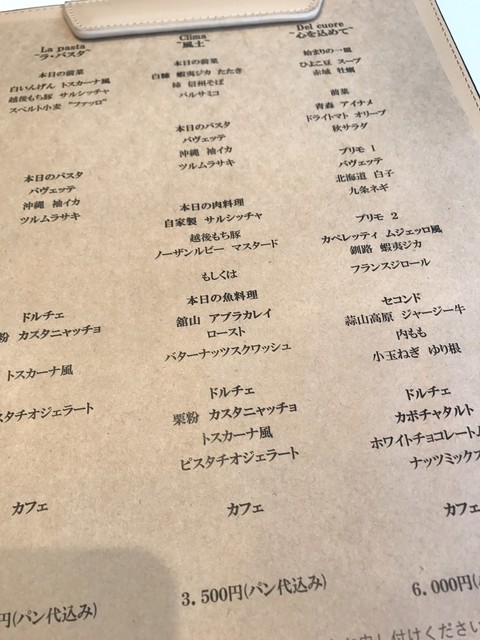 La pasta
"ラ・パスタ"
本日の前菜
白いんげん トスカーナ風
越後もち豚 サルシッチャ
スペルト小麦 "ファッロ"
本日のパスタ
バヴェッテ
沖縄 袖イカ
ツルムラサキ
ドルチェ
粉 カスタニャッチョ
トスカーナ風
スタチオジェラート
カフェ
円(パン代込み)
Clima
"風土"
本日の前菜
白糠 蝦夷ジカ たたき
柿 信州そば
バルサミコ
本日のパスタ
バヴェッテ
沖縄 袖イカ
ツルムラサキ
本日の肉料理
自家製 サルシッチャ
越後もち豚
ノーザンルビー マスタード
もしくは
本日の魚料理
舘山 アブラカレイ
ロースト
バターナッツスクワッシュ
ドルチェ
栗粉 カスタニャッチョ
トスカーナ風
ピスタチオジェラート
カフェ
3.500円(パン代込み)
Del cuore
"心を込めて"
始まりの一皿
ひよこ豆 スープ
赤城 牡蠣
前菜
青森 アイナメ
ドライトマト オリーブ
秋サラダ
プリモ 1
バヴェッテ
北海道 白子
九条ネギ
プリモ 2
カペレッティ ムジェッロ風
釧路 蝦夷ジカ
フランスジロール
セコンド
蒜山高原 ジャージー牛
内もも
小玉ねぎ ゆり根
ドルチェ
カボチャタルト
ホワイトチョコレート
ナッツミックス
カフェ
6.000円(
申し付けください